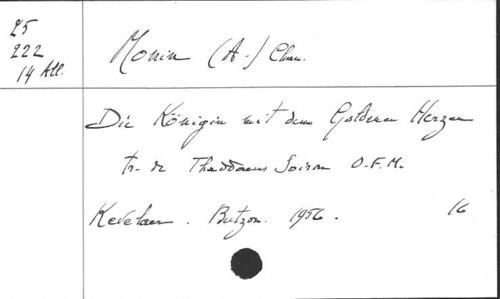 25
222
14 All.
Monin (A.-) Chan.
Die Königin mit dem Goldenen Herzen
tr. de Thaddaeus Soiron O.F.M.
Kevelaer. Butzon. 1956. 16